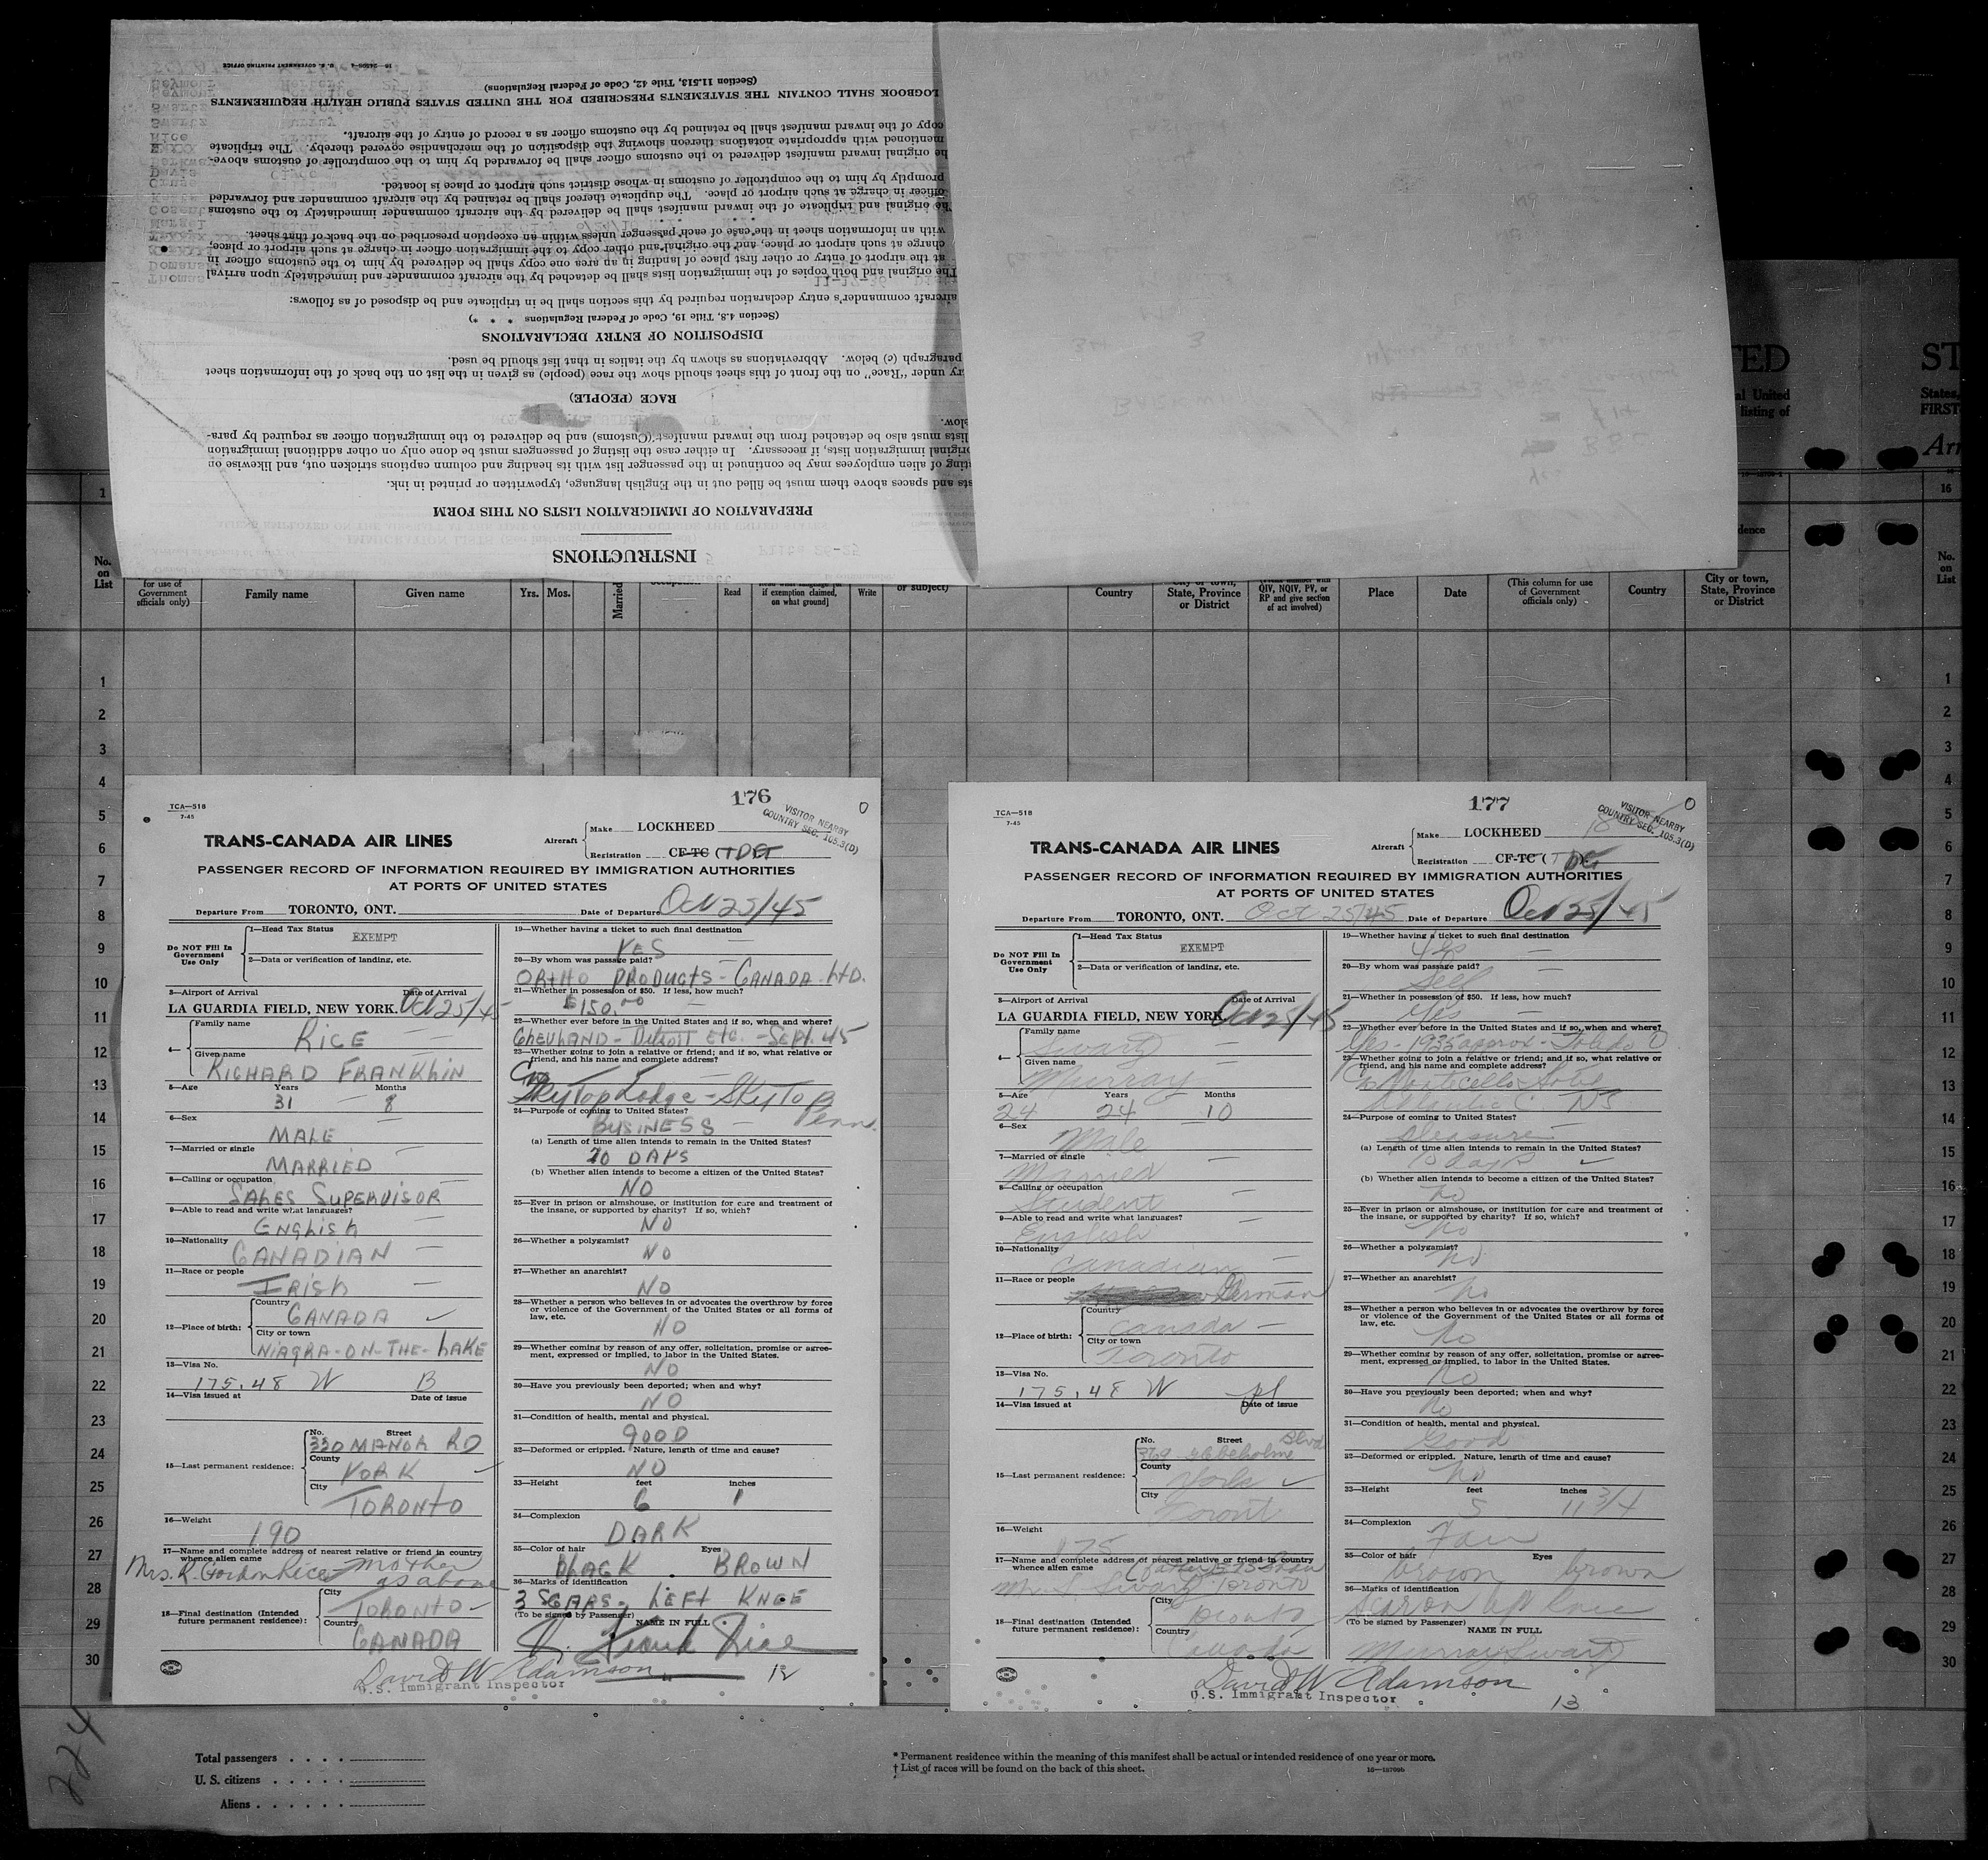 INSTRUCTIONS
PREPARATION OF IMMIGRATION LISTS ON THIS FORM
sts and spaces above them must be filled out in the English language, typewritten or printed in ink.
ting of alien employees may be continued in the passenger list with its heading and column captions stricken out, and likewise on
original immigration lists, if necessary. In either case the listing of passengers must be done only on other additional immigration
lists must also be detached from the inward manifest (Customs) and be delivered to the immigration officer as required by para-
low.
RACE (PEOPLE)
ry under "Race" on the front of this sheet should show the race (people) as given in the list on the back of the information sheet
paragraph (c) below. Abbreviations as shown by the italics in that list should be used.
DISPOSITION OF ENTRY DECLARATIONS
(Section 4.8, Title 19, Code of Federal Regulations * * *)
aircraft commander's entry declaration required by this section shall be in triplicate and be disposed of as follows:
The original and both copies of the immigration lists shall be detached by the aircraft commander and immediately upon arrival
at the airport of entry or other first place of landing in an area one copy shall be delivered by him to the customs officer in
charge at such airport or place, and the original and other copy to the immigration officer in charge at such airport or place,
with an information sheet in the case of each passenger unless within an exception prescribed on the back of that sheet.
The original and triplicate of the inward manifest shall be delivered by the aircraft commander immediately to the customs
officer in charge at such airport or place. The duplicate thereof shall be retained by the aircraft commander and forwarded
promptly by him to the comptroller of customs in whose district such airport or place is located.
he original inward manifest delivered to the customs officer shall be forwarded by him to the comptroller of customs above-
mentioned with appropriate notations thereon showing the disposition of the merchandise covered thereby. The triplicate
copy of the inward manifest shall be retained by the customs officer as a record of entry of the aircraft.
LOGBOOK SHALL CONTAIN THE STATEMENTS PRESCRIBED FOR THE UNITED STATES PUBLIC HEALTH REQUIREMENTS
(Section 11.513, Title 42, Code of Federal Regulations)
U. S. GOVERNMENT PRINTING OFFICE
No. on List
for use of Government officials only)
Family name
Given name
Yrs. Mos.
Married
Read
if exemption claimed, on what ground]
Write
or subject)
Country
City or town, State, Province or District
QIV, NQIV, PV, or RP and give section of act involved)
Place
Date
(This column for use of Government officials only)
Country
City or town, State, Province or District
No. on List
176
VISITOR NEARBY
COUNTRY SEC. 105.3(D)
TCA—518
7-45
TRANS-CANADA AIR LINES
Aircraft Make LOCKHEED
Registration CF-TC (TDG
PASSENGER RECORD OF INFORMATION REQUIRED BY IMMIGRATION AUTHORITIES
AT PORTS OF UNITED STATES
Departure From TORONTO, ONT. Date of Departure Oct 25/45
Do NOT Fill In Government Use Only
1—Head Tax Status
EXEMPT
2—Data or verification of landing, etc.
3—Airport of Arrival Date of Arrival
LA GUARDIA FIELD, NEW YORK. Oct 25/45
4— Family name
RICE
Given name
RICHARD FRANKLIN
5—Age Years Months
31 8
6—Sex
MALE
7—Married or single
MARRIED
8—Calling or occupation
SALES SUPERVISOR
9—Able to read and write what languages?
ENGLISH
10—Nationality
CANADIAN
11—Race or people
IRISH
12—Place of birth: Country
CANADA
City or town
NIAGRA-ON-THE-LAKE
13—Visa No.
175.48 W B
14—Visa issued at Date of issue
15—Last permanent residence: No. Street
330 MANOR RD
County
YORK
City
TORONTO
16—Weight
190
17—Name and complete address of nearest relative or friend in country whence alien came
Mrs. R. Gordon Rice mother
as above
18—Final destination (Intended future permanent residence): City
TORONTO
Country
CANADA
19—Whether having a ticket to such final destination
YES
20—By whom was passage paid?
ORTHO PRODUCTS - CANADA LTD.
21—Whether in possession of $50. If less, how much?
$150.00
22—Whether ever before in the United States and if so, when and where?
CLEVELAND - Detroit ETC. - SEPT. 45
23—Whether going to join a relative or friend; and if so, what relative or friend, and his name and complete address?
SkyTop Lodge - SkyTop
Penn.
24—Purpose of coming to United States?
BUSINESS
(a) Length of time alien intends to remain in the United States?
20 DAYS
(b) Whether alien intends to become a citizen of the United States?
NO
25—Ever in prison or almshouse, or institution for care and treatment of the insane, or supported by charity? If so, which?
NO
26—Whether a polygamist?
NO
27—Whether an anarchist?
NO
28—Whether a person who believes in or advocates the overthrow by force or violence of the Government of the United States or all forms of law, etc.
NO
29—Whether coming by reason of any offer, solicitation, promise or agreement, expressed or implied, to labor in the United States.
NO
30—Have you previously been deported; when and why?
NO
31—Condition of health, mental and physical.
GOOD
32—Deformed or crippled. Nature, length of time and cause?
NO
33—Height feet inches
6 1
34—Complexion
DARK
35—Color of hair Eyes
BLACK BROWN
36—Marks of identification
3 SCARS - LEFT KNEE
(To be signed by Passenger) NAME IN FULL
R. Frank Rice
David W Adamson 12
U.S. Immigrant Inspector
177
VISITOR NEARBY
COUNTRY SEC. 105.3(D)
TCA—518
7-45
TRANS-CANADA AIR LINES
Aircraft Make LOCKHEED 18
Registration CF-TC (T DG
PASSENGER RECORD OF INFORMATION REQUIRED BY IMMIGRATION AUTHORITIES
AT PORTS OF UNITED STATES
Departure From TORONTO, ONT. Oct 25/45 Date of Departure Oct 25/45
Do NOT Fill In Government Use Only
1—Head Tax Status
EXEMPT
2—Data or verification of landing, etc.
3—Airport of Arrival Date of Arrival
LA GUARDIA FIELD, NEW YORK. Oct 25/45
4— Family name
Swartz
Given name
Murray
5—Age Years Months
24 24 10
6—Sex
Male
7—Married or single
Married
8—Calling or occupation
Student
9—Able to read and write what languages?
English
10—Nationality
Canadian
11—Race or people
German
12—Place of birth: Country
Canada
City or town
Toronto
13—Visa No.
175.48 W pl
14—Visa issued at Date of issue
15—Last permanent residence: No. Street
Blvd
County
York
City
Toront
16—Weight
175
17—Name and complete address of nearest relative or friend in country whence alien came
Swartz Toronto
18—Final destination (Intended future permanent residence): City
Toronto
Country
Canada
19—Whether having a ticket to such final destination
Yes
20—By whom was passage paid?
Self
21—Whether in possession of $50. If less, how much?
Yes
22—Whether ever before in the United States and if so, when and where?
Yes - 1935 approx - Toledo O
23—Whether going to join a relative or friend; and if so, what relative or friend, and his name and complete address?
Monticello Hotel
Atlantic C. NJ
24—Purpose of coming to United States?
pleasure
(a) Length of time alien intends to remain in the United States?
10 days
(b) Whether alien intends to become a citizen of the United States?
no
25—Ever in prison or almshouse, or institution for care and treatment of the insane, or supported by charity? If so, which?
no
26—Whether a polygamist?
no
27—Whether an anarchist?
no
28—Whether a person who believes in or advocates the overthrow by force or violence of the Government of the United States or all forms of law, etc.
no
29—Whether coming by reason of any offer, solicitation, promise or agreement, expressed or implied, to labor in the United States.
no
30—Have you previously been deported; when and why?
no
31—Condition of health, mental and physical.
Good
32—Deformed or crippled. Nature, length of time and cause?
no
33—Height feet inches
5 11 3/4
34—Complexion
Fair
35—Color of hair Eyes
brown brown
36—Marks of identification
scar on left knee
(To be signed by Passenger) NAME IN FULL
Murray Swartz
David W Adamson
U.S. Immigrant Inspector 13
224
Total passengers
U. S. citizens
Aliens
* Permanent residence within the meaning of this manifest shall be actual or intended residence of one year or more.
† List of races will be found on the back of this sheet.